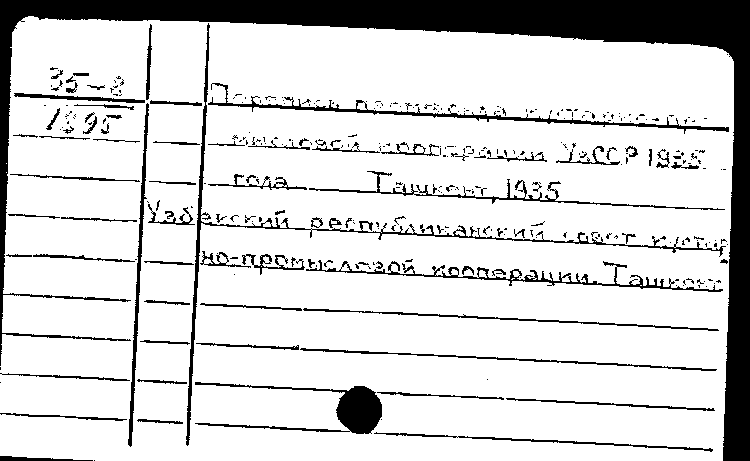 35-8
1895
Перепись промфонда кустарно-про-
мысловой кооперации УзССР 1935
года Ташкент, 1935
Узбекский республиканский совет кустар
но-промысловой кооперации. Ташкент